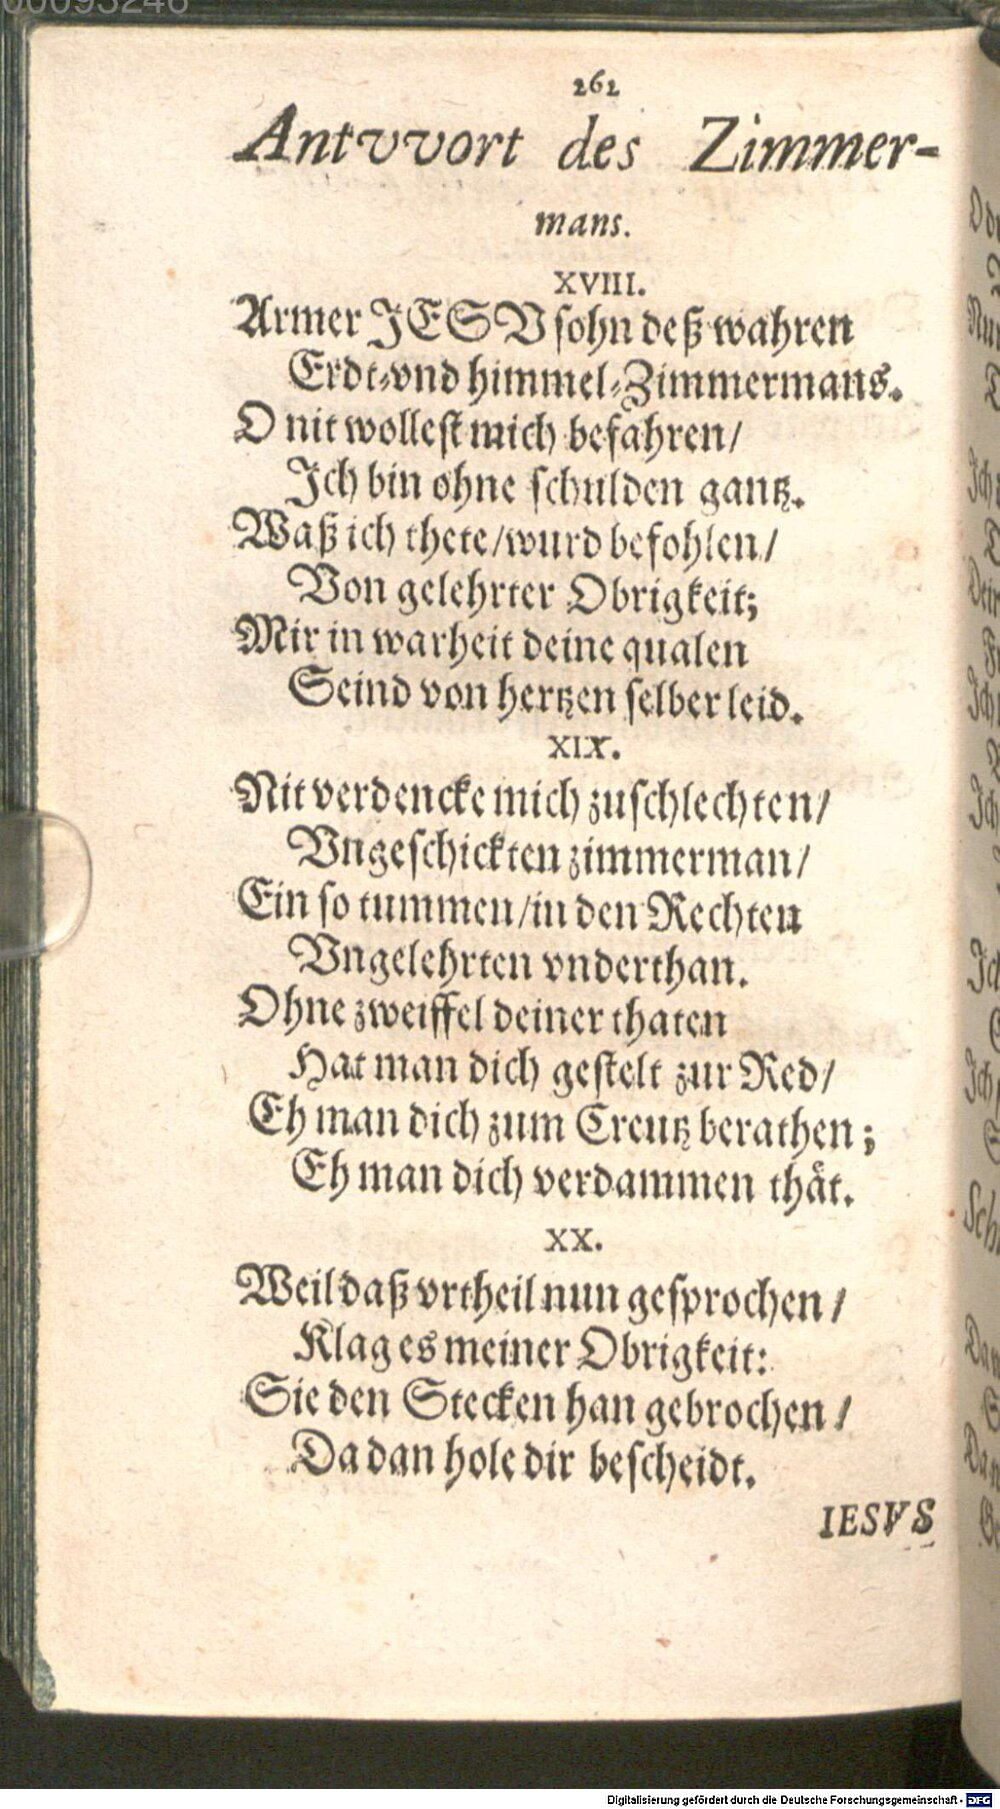 00095246
262
Antvvort des Zimmer-
mans.
XVIII.
Armer JESV sohn deß wahren
Erdt-vnd himmel-Zimmermans.
O nit wollest mich befahren/
Ich bin ohne schulden gantz.
Waß ich thete/wurd befohlen/
Von gelehrter Obrigkeit;
Mir in warheit deine qualen
Seind von hertzen selber leid.
XIX.
Nit verdencke mich zuschlechten/
Vngeschickten zimmerman/
Ein so tummen/in den Rechten
Vngelehrten vnderthan.
Ohne zweiffel deiner thaten
Hat man dich gestelt zur Red/
Eh man dich zum Creutz berathen;
Eh man dich verdammen thät.
XX.
Weil daß vrtheil nun gesprochen/
Klag es meiner Obrigkeit:
Sie den Stecken han gebrochen/
Da dan hole dir bescheidt.
IESVS
Digitalisierung gefördert durch die Deutsche Forschungsgemeinschaft - DFG